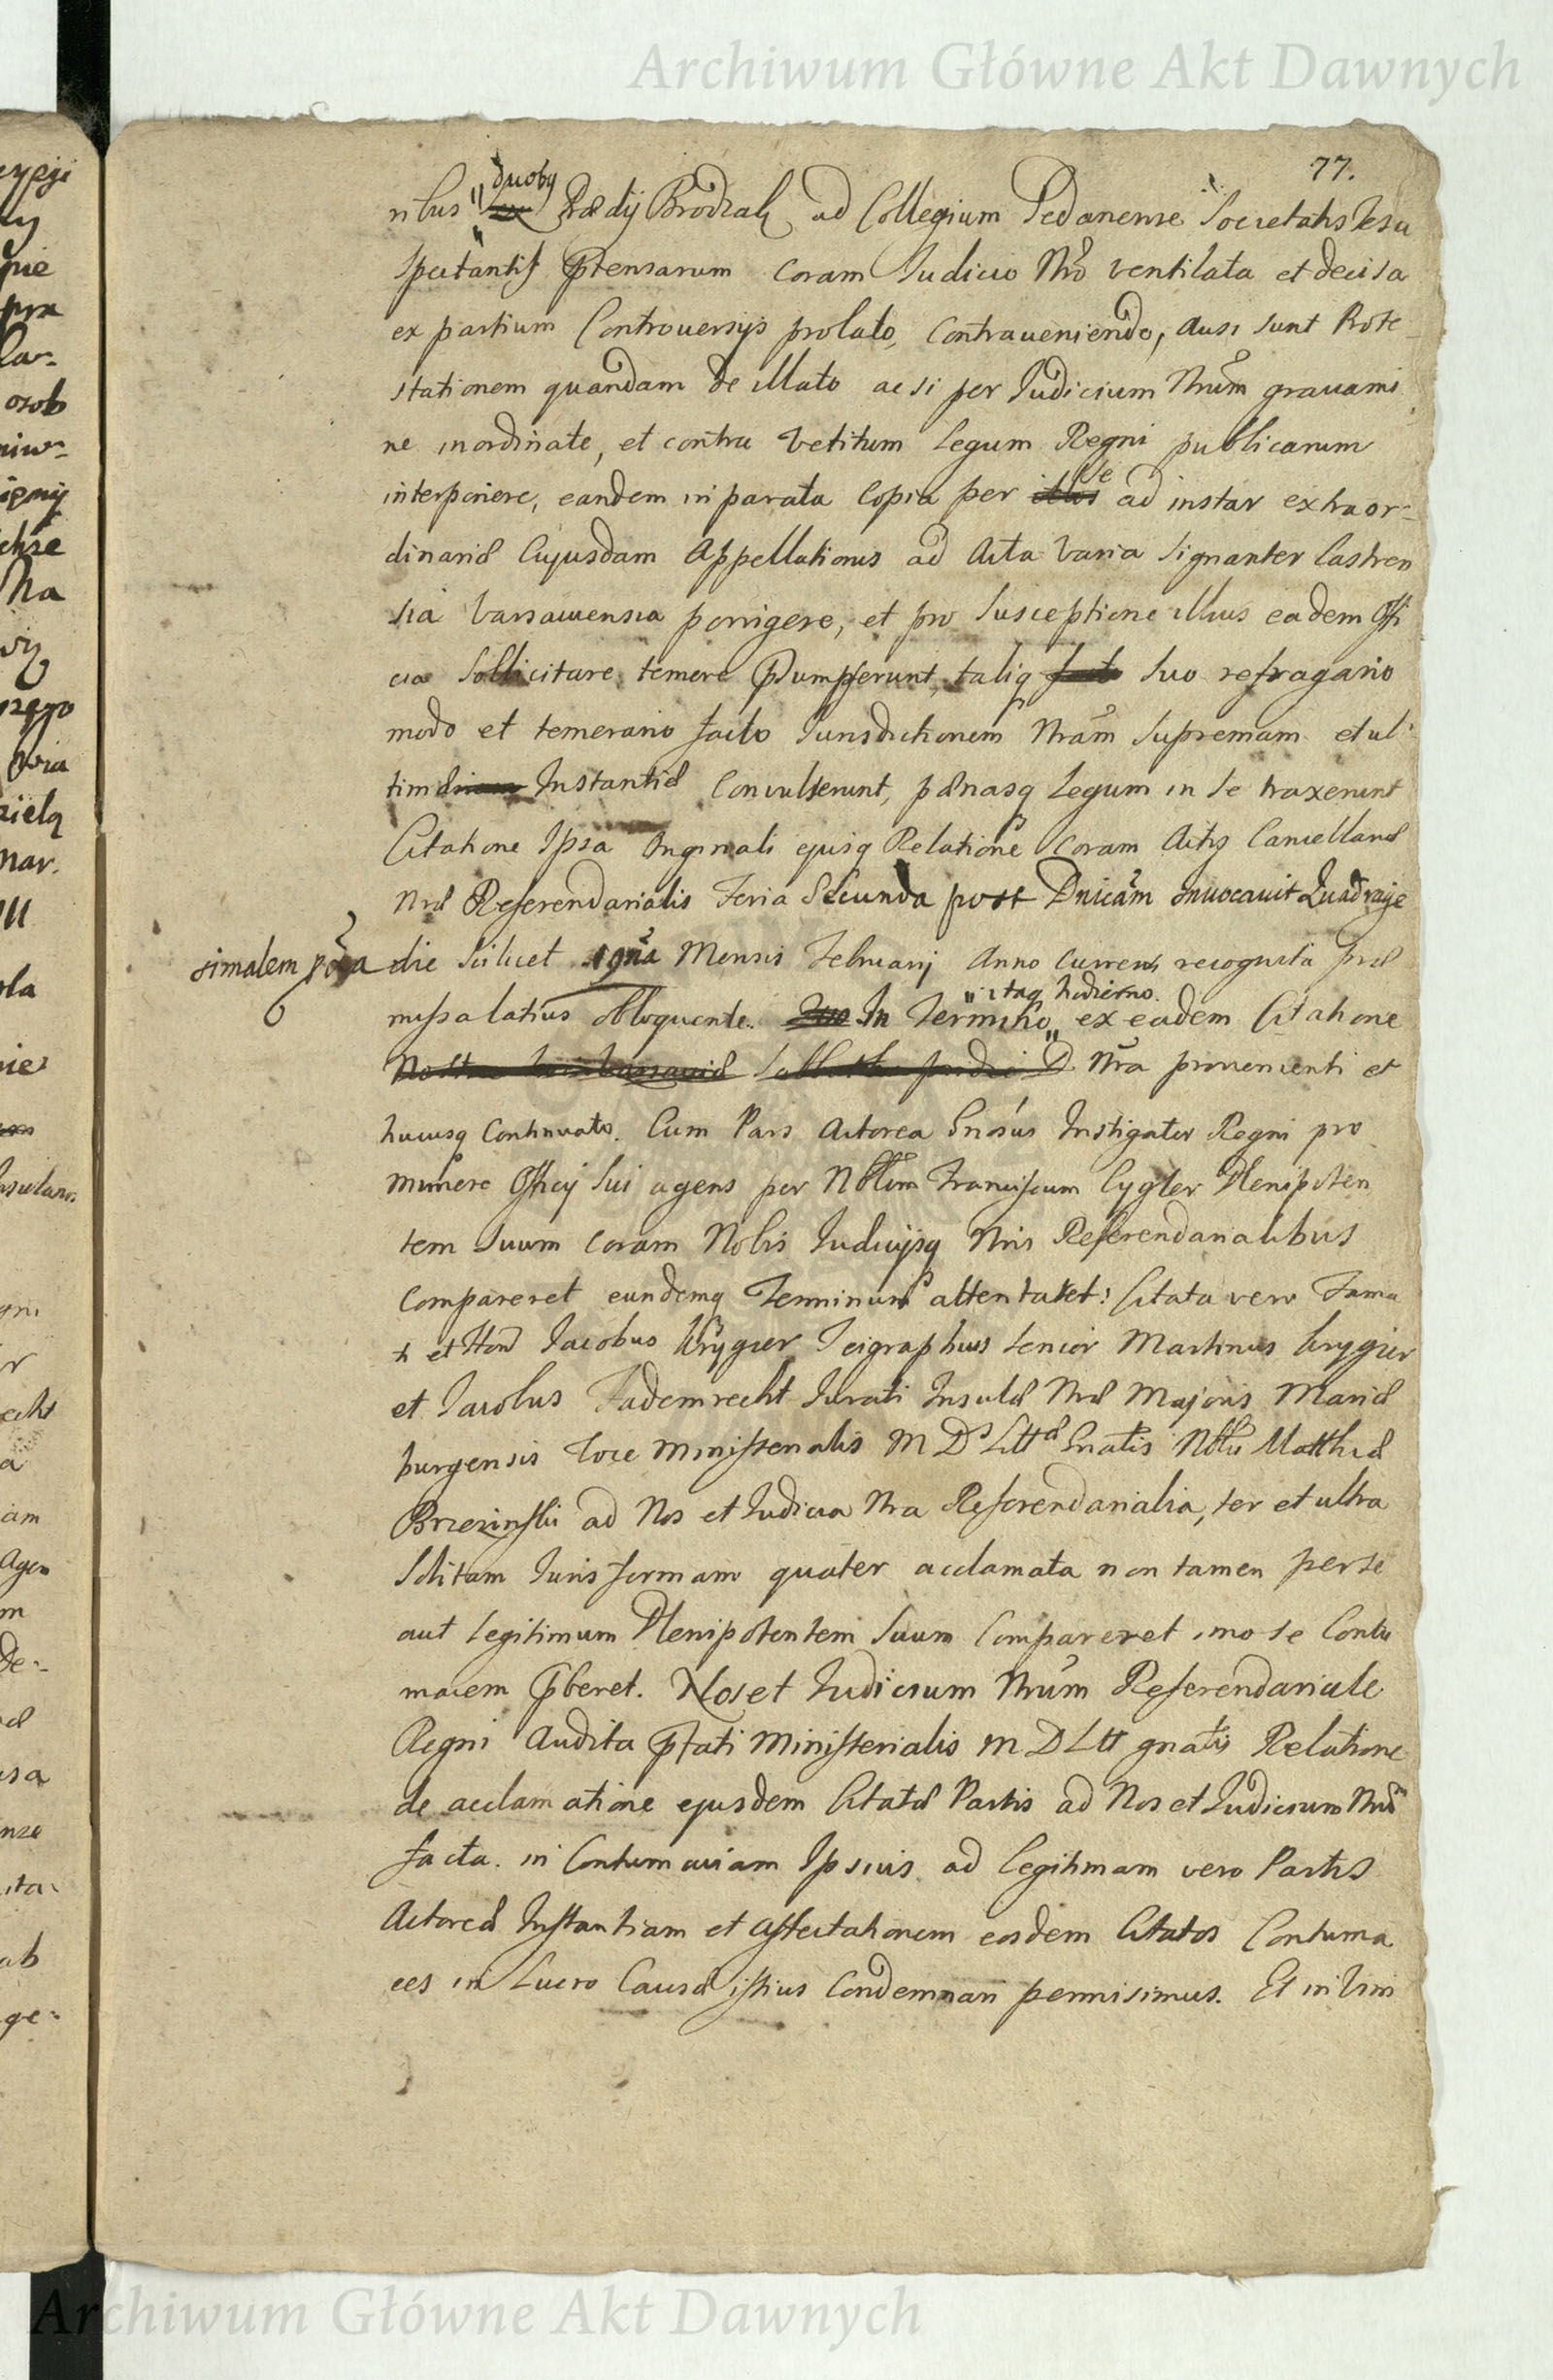 Archiwum Główne Akt Dawnych
77.
duobq
nibus Prædij Brodzak ad Collegium Gedanense Societatis Jesu
spectantis Prtensarum coram Judicio Nrõ ventilata et decisa
ex partium Controversijs prolato, contraveniendo, ausi sunt Prote
stationem quandam de illato ac si per Judicium Nrum gravami
ne inordinate, et contra vetitum Legum Regni publicarum
interponere, eandem in parata Copia per se ad instar extraor-
dinariæ Cujusdam Appellationis ad Acta varia signanter Castren
sia Varsaviensia porrigere, et pro susceptione illius eadem Offi
cia sollicitare temere Psumpserunt, taliq suo refragario
modo et temerario facto Jurisdictionem Nram supremam et ul
timæ Instantiæ Convulserunt, pænasq Legum in se traxerunt
Citatione Ipsa Originali ejusq Relatione coram Actis Cancellariæ
Nræ Referendarialis Feria Secunda post Dnicam Invocavit Quadrage
simalem pxa die scilicet 19na Mensis Februarij Anno Curren recognita præ
missa latius obloquente. In Termino itaq hodierno ex eadem Citatione
Nra provenienti et
hucusq Continuato. Cum Pars Actorea Gnosus Instigator Regni pro
munere Officij sui agens per Nblem Franciscum Cygler Plenipoten
tem suum coram Nobis Judicijsq Nris Referendarialibus
compareret eundemq Terminum attentaret: Citata vero Fama
ti et Hon Jacobus Krygier Teigraphus senior Martinus Krygier
et Jacobus Fademrecht Jurati Insulæ Nræ Majoris Mariæ
burgensis voce Ministerialis M D Littæ Gnalis Nblis Matthiæ
Brzezinski ad Nos et Judicia Nra Referendarialia, ter et ultra
solitam Juris formam quater acclamata non tamen per se
aut legitimum Plenipotentem suum Compareret imo se Contu
macem Pberet. Nos et Judicium Nrum Referendariale
Regni Audita Pfati Ministerialis M D Litt gnalis Relatione
de acclamatione ejusdem Citatæ Partis ad Nos et Judicium Nrum
facta. in Contumaciam Ipsius ad legitimam vero Partis
Actoreæ Instantiam et affectationem eosdem Citatos Contuma
ces in Lucro Causæ istius Condemnari permisimus. Et in vim
Archiwum Główne Akt Dawnych